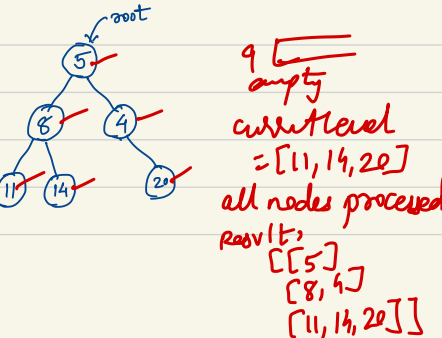 root
5
8
4
11
14
20
q
empty
currentlevel
=[11,14,20]
all nodes processed
result,
[[5]
[8,4]
[11,14,20]]